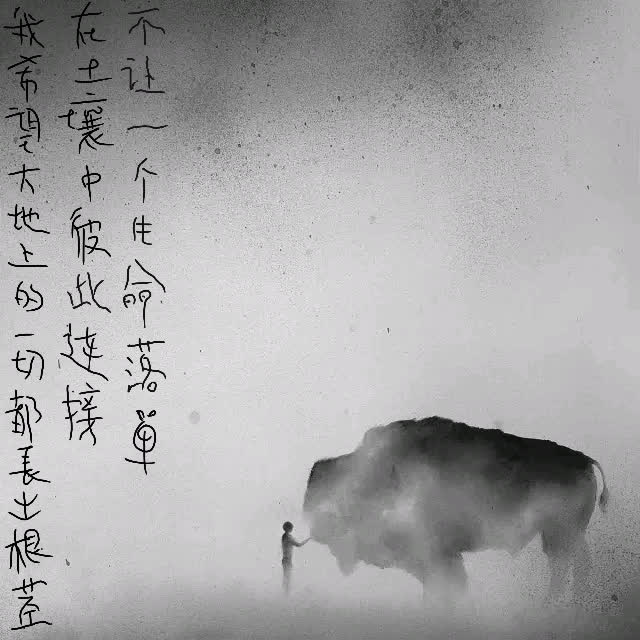 我希望大地上的一切都长出根茎
在土壤中彼此连接
不让一个生命落单